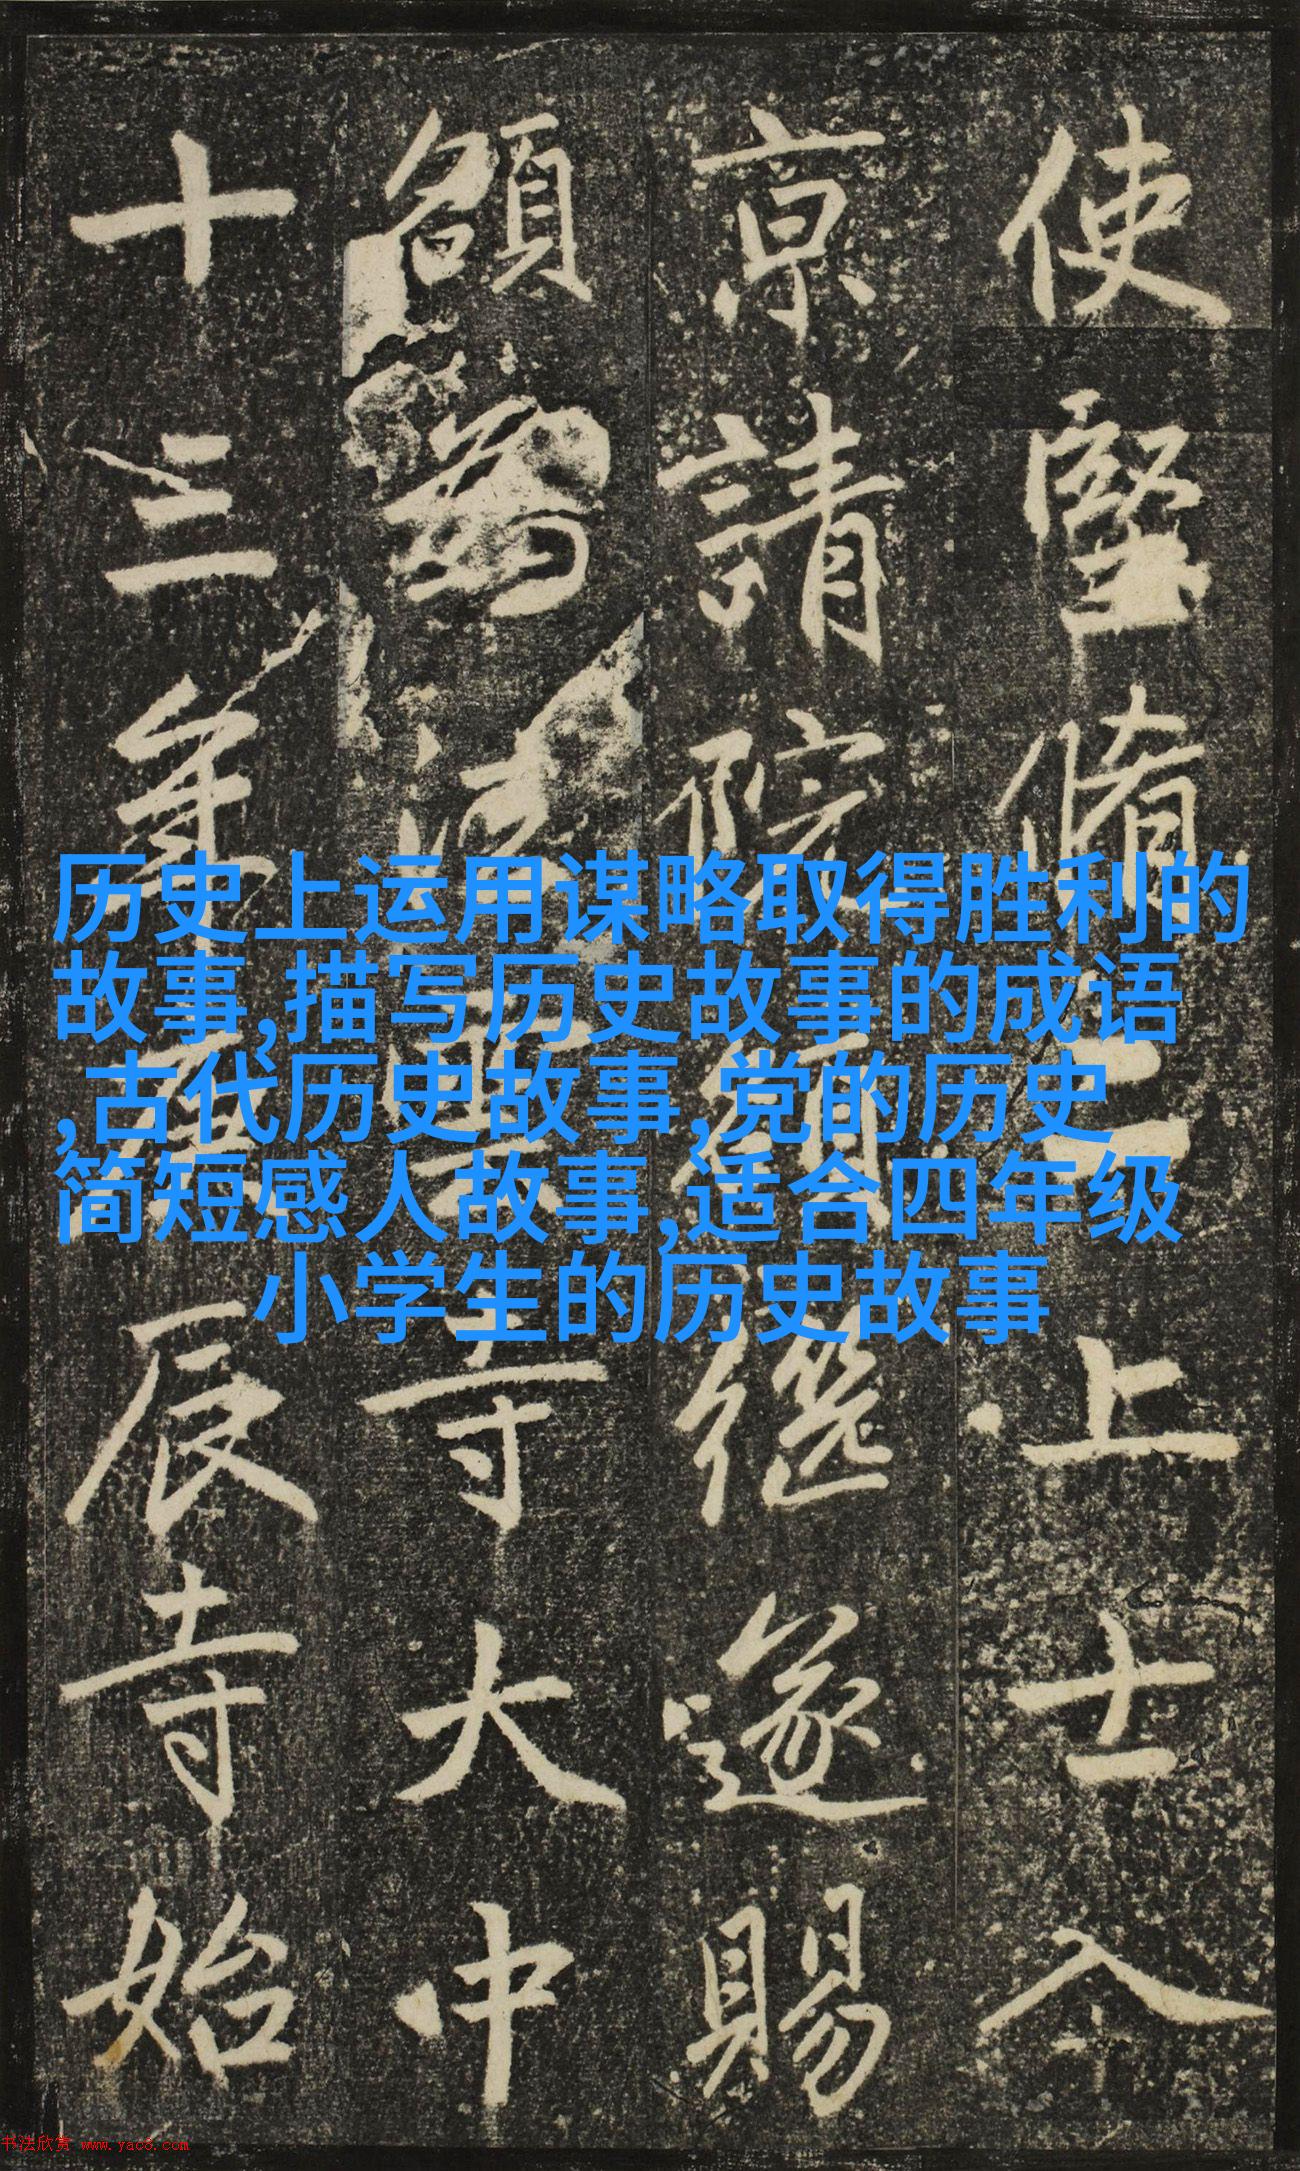 使堅脩上士入
京請院額繼遂賜
額為法雲寺大中
十三年辰寺始
历史上运用谋略取得胜利的
故事,描写历史故事的成语
,古代历史故事,党的历史
简短感人故事,适合四年级
小学生的历史故事
书法欣赏 www.yac8.com